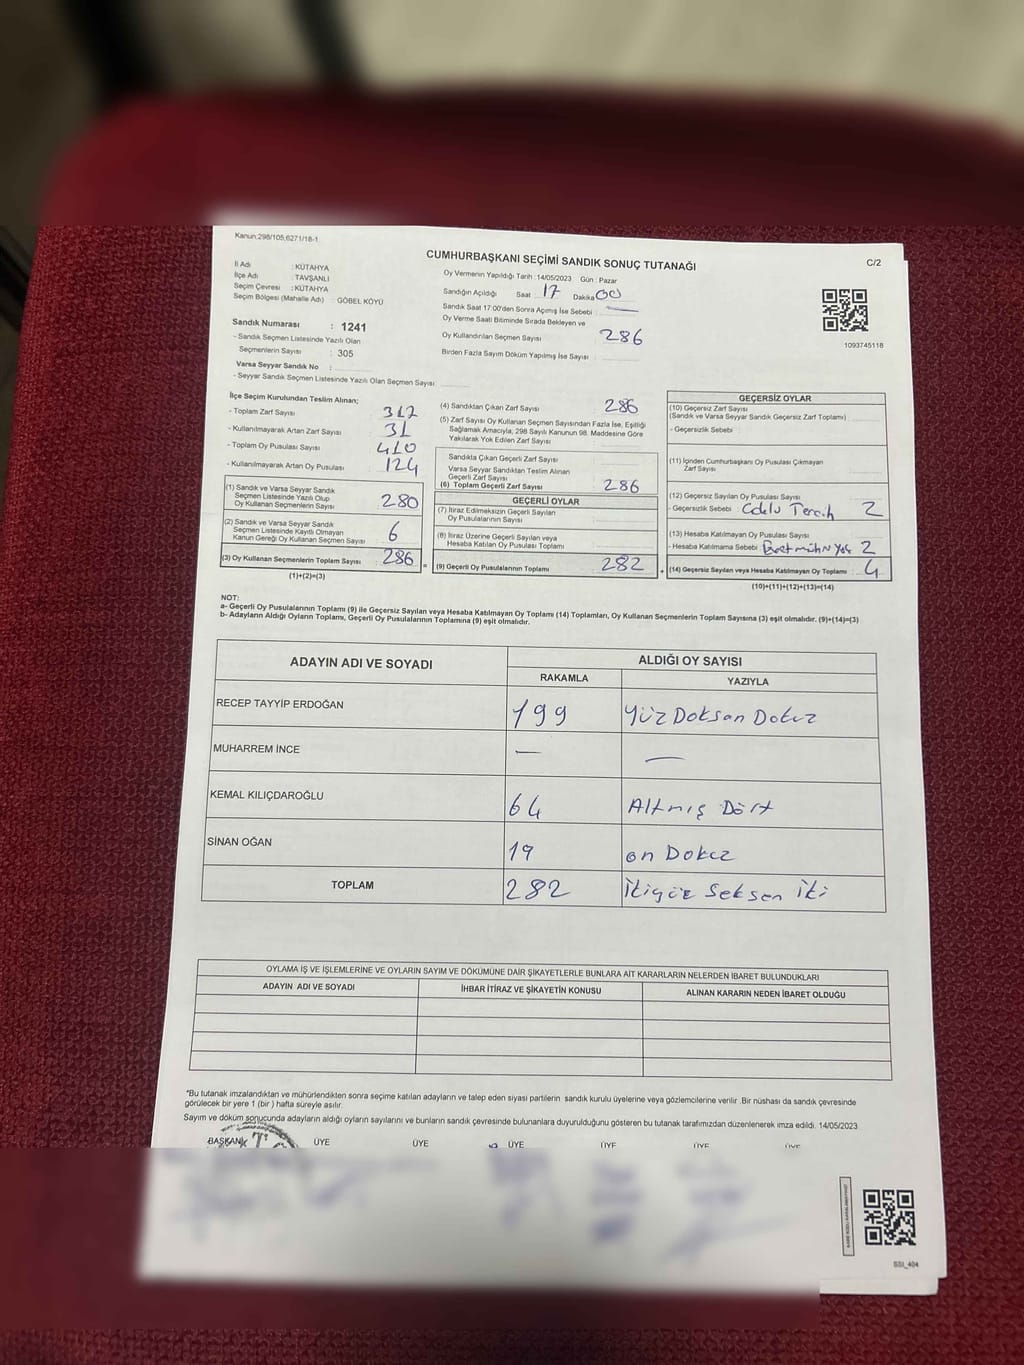 Kanun:298/105,6271/18-1
CUMHURBAŞKANI SEÇİMİ SANDIK SONUÇ TUTANAĞI
C/2
İl Adı : KÜTAHYA
İlçe Adı : TAVŞANLI
Seçim Çevresi : KÜTAHYA
Seçim Bölgesi (Mahalle Adı) : GÖBEL KÖYÜ
Sandık Numarası : 1241
- Sandık Seçmen Listesinde Yazılı Olan
Seçmenlerin Sayısı : 305
Varsa Seyyar Sandık No :
- Seyyar Sandık Seçmen Listesinde Yazılı Olan Seçmen Sayısı:
Oy Vermenin Yapıldığı Tarih : 14/05/2023 Gün : Pazar
Sandığın Açıldığı Saat : 17 Dakika 00
Sandık Saat 17:00'den Sonra Açılmış İse Sebebi : —
Oy Verme Saati Bitiminde Sırada Bekleyen ve
Oy Kullandırılan Seçmen Sayısı 286
Birden Fazla Sayım Döküm Yapılmış İse Sayısı :
1093745118
İlçe Seçim Kurulundan Teslim Alınan;
- Toplam Zarf Sayısı 317
- Kullanılmayarak Artan Zarf Sayısı 31
- Toplam Oy Pusulası Sayısı 410
- Kullanılmayarak Artan Oy Pusulası 124
(1) Sandık ve Varsa Seyyar Sandık
Seçmen Listesinde Yazılı Olup
Oy Kullanan Seçmenlerin Sayısı 280
(2) Sandık ve Varsa Seyyar Sandık
Seçmen Listesinde Kayıtlı Olmayan
Kanun Gereği Oy Kullanan Seçmen Sayısı 6
(3) Oy Kullanan Seçmenlerin Toplam Sayısı 286 =
(1)+(2)=(3)
(4) Sandıktan Çıkan Zarf Sayısı 286
(5) Zarf Sayısı Oy Kullanan Seçmen Sayısından Fazla İse, Eşitliği
Sağlamak Amacıyla; 298 Sayılı Kanunun 98. Maddesine Göre
Yakılarak Yok Edilen Zarf Sayısı
Sandıkla Çıkan Geçerli Zarf Sayısı
Varsa Seyyar Sandıktan Teslim Alınan
Geçerli Zarf Sayısı
(6) Toplam Geçerli Zarf Sayısı 286
GEÇERLİ OYLAR
(7) İtiraz Edilmeksizin Geçerli Sayılan
Oy Pusulalarının Sayısı
(8) İtiraz Üzerine Geçerli Sayılan veya
Hesaba Katılan Oy Pusulası Toplamı
(9) Geçerli Oy Pusulalarının Toplamı 282 +
GEÇERSİZ OYLAR
(10) Geçersiz Zarf Sayısı
(Sandık ve Varsa Seyyar Sandık Geçersiz Zarf Toplamı)
- Geçersizlik Sebebi
(11) İçinden Cumhurbaşkanı Oy Pusulası Çıkmayan
Zarf Sayısı
(12) Geçersiz Sayılan Oy Pusulası Sayısı
- Geçersizlik Sebebi : Tercih 2
(13) Hesaba Katılmayan Oy Pusulası Sayısı
- Hesaba Katılmama Sebebi 2
(14) Geçersiz Sayılan veya Hesaba Katılmayan Oy Toplamı 4
(10)+(11)+(12)+(13)=(14)
NOT:
a- Geçerli Oy Pusulalarının Toplamı (9) ile Geçersiz Sayılan veya Hesaba Katılmayan Oy Toplamı (14) Toplamları, Oy Kullanan Seçmenlerin Toplam Sayısına (3) eşit olmalıdır. (9)+(14)=(3)
b- Adayların Aldığı Oyların Toplamı, Geçerli Oy Pusulalarının Toplamına (9) eşit olmalıdır.
ADAYIN ADI VE SOYADI
ALDIĞI OY SAYISI
RAKAMLA YAZIYLA
RECEP TAYYİP ERDOĞAN 199 Yüz Doksan Dokuz
MUHARREM İNCE — —
KEMAL KILIÇDAROĞLU 64 Altmış Dört
SİNAN OĞAN 19 on Dokuz
TOPLAM 282 İkiyüz Seksen İki
OYLAMA İŞ VE İŞLEMLERİNE VE OYLARIN SAYIM VE DÖKÜMÜNE DAİR ŞİKAYETLERLE BUNLARA AİT KARARLARIN NELERDEN İBARET BULUNDUKLARI
ADAYIN ADI VE SOYADI İHBAR İTİRAZ VE ŞİKAYETİN KONUSU ALINAN KARARIN NEDEN İBARET OLDUĞU
*Bu tutanak imzalandıktan ve mühürlendikten sonra seçime katılan adayların ve talep eden siyasi partilerin sandık kurulu üyelerine veya gözlemcilerine verilir .Bir nüshası da sandık çevresinde
görülecek bir yere 1 (bir ) hafta süreyle asılır.
Sayım ve döküm sonucunda adayların aldığı oyların sayılarını ve bunların sandık çevresinde bulunanlara duyurulduğunu gösteren bu tutanak tarafımızdan düzenlenerek imza edildi. 14/05/2023
BAŞKAN ÜYE ÜYE ÜYE ÜYE ÜYE ÜYE
SSI_404